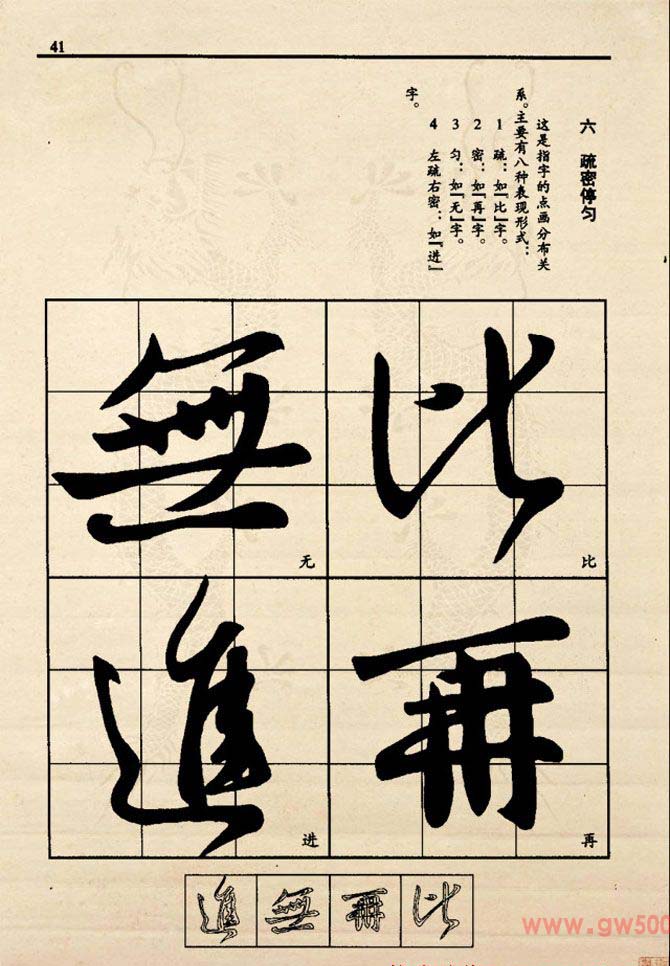 41
六 疏密停匀
这是指字的点画分布关
系。主要有八种表现形式：
1 疏：如『比』字。
2 密：如『再』字。
3 匀：如『无』字。
4 左疏右密：如『进』
字。
比
比
再
再
無
无
進
进
比
再
無
進
www.gw500